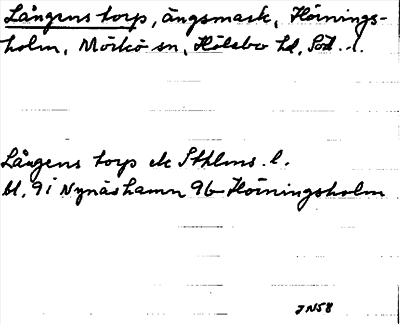 Långens torp, ängsmark, Hörnings-
holm, Mörkö sn, Hölebo hd, Söd. l.
Långens torp ek Sthlms. l.
bl. 9i Nynäshamn 9b Hörningsholm
JN58